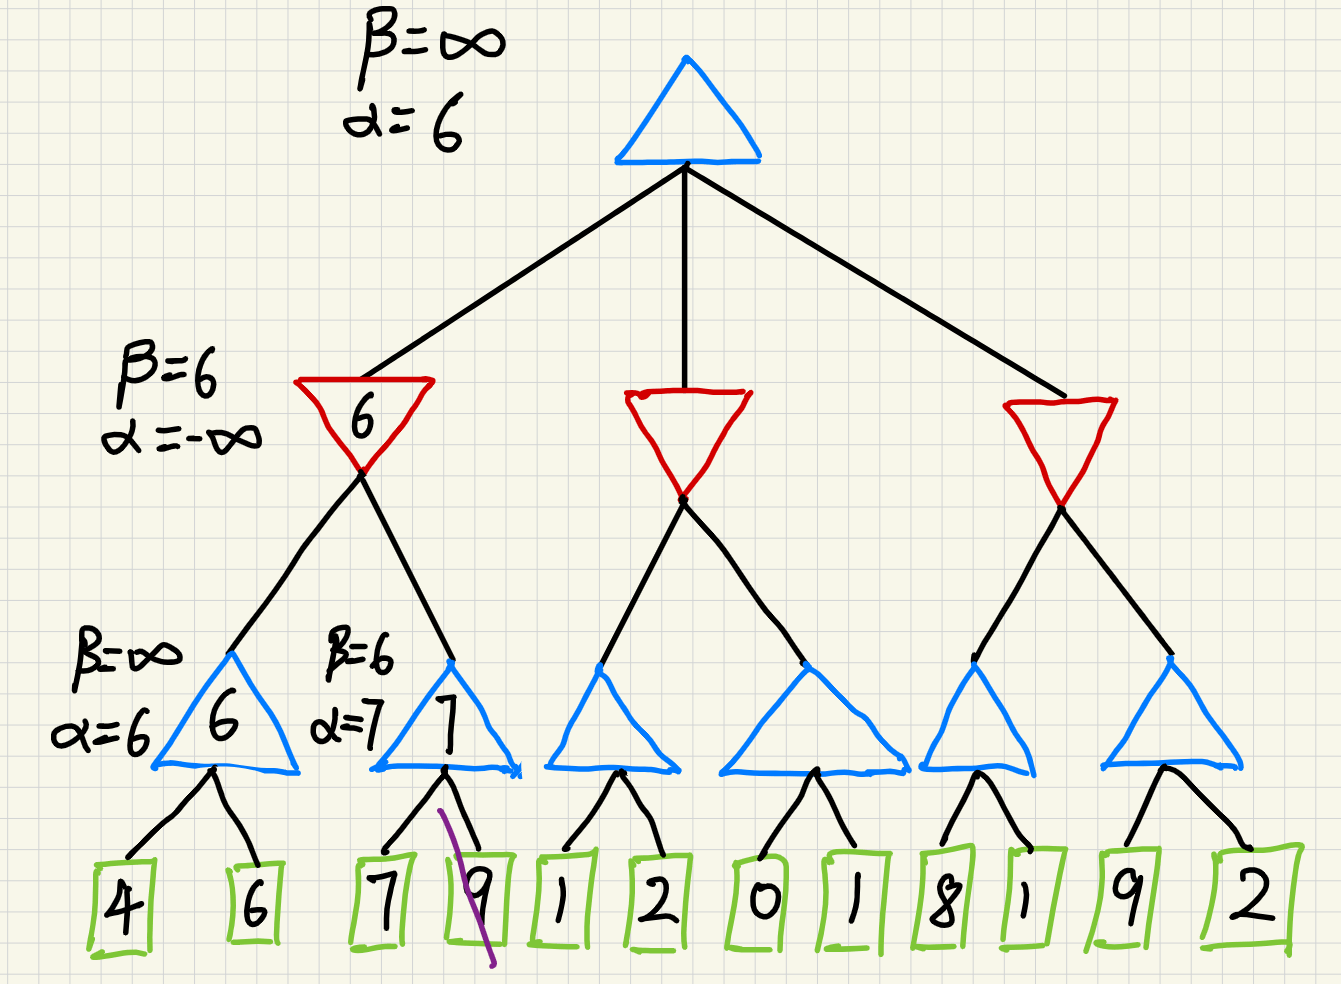 β=∞
α=6
β=6
α=-∞
6
β=∞
α=6
6
β=6
α=7
7
4 6 7 9 1 2 0 1 8 1 9 2